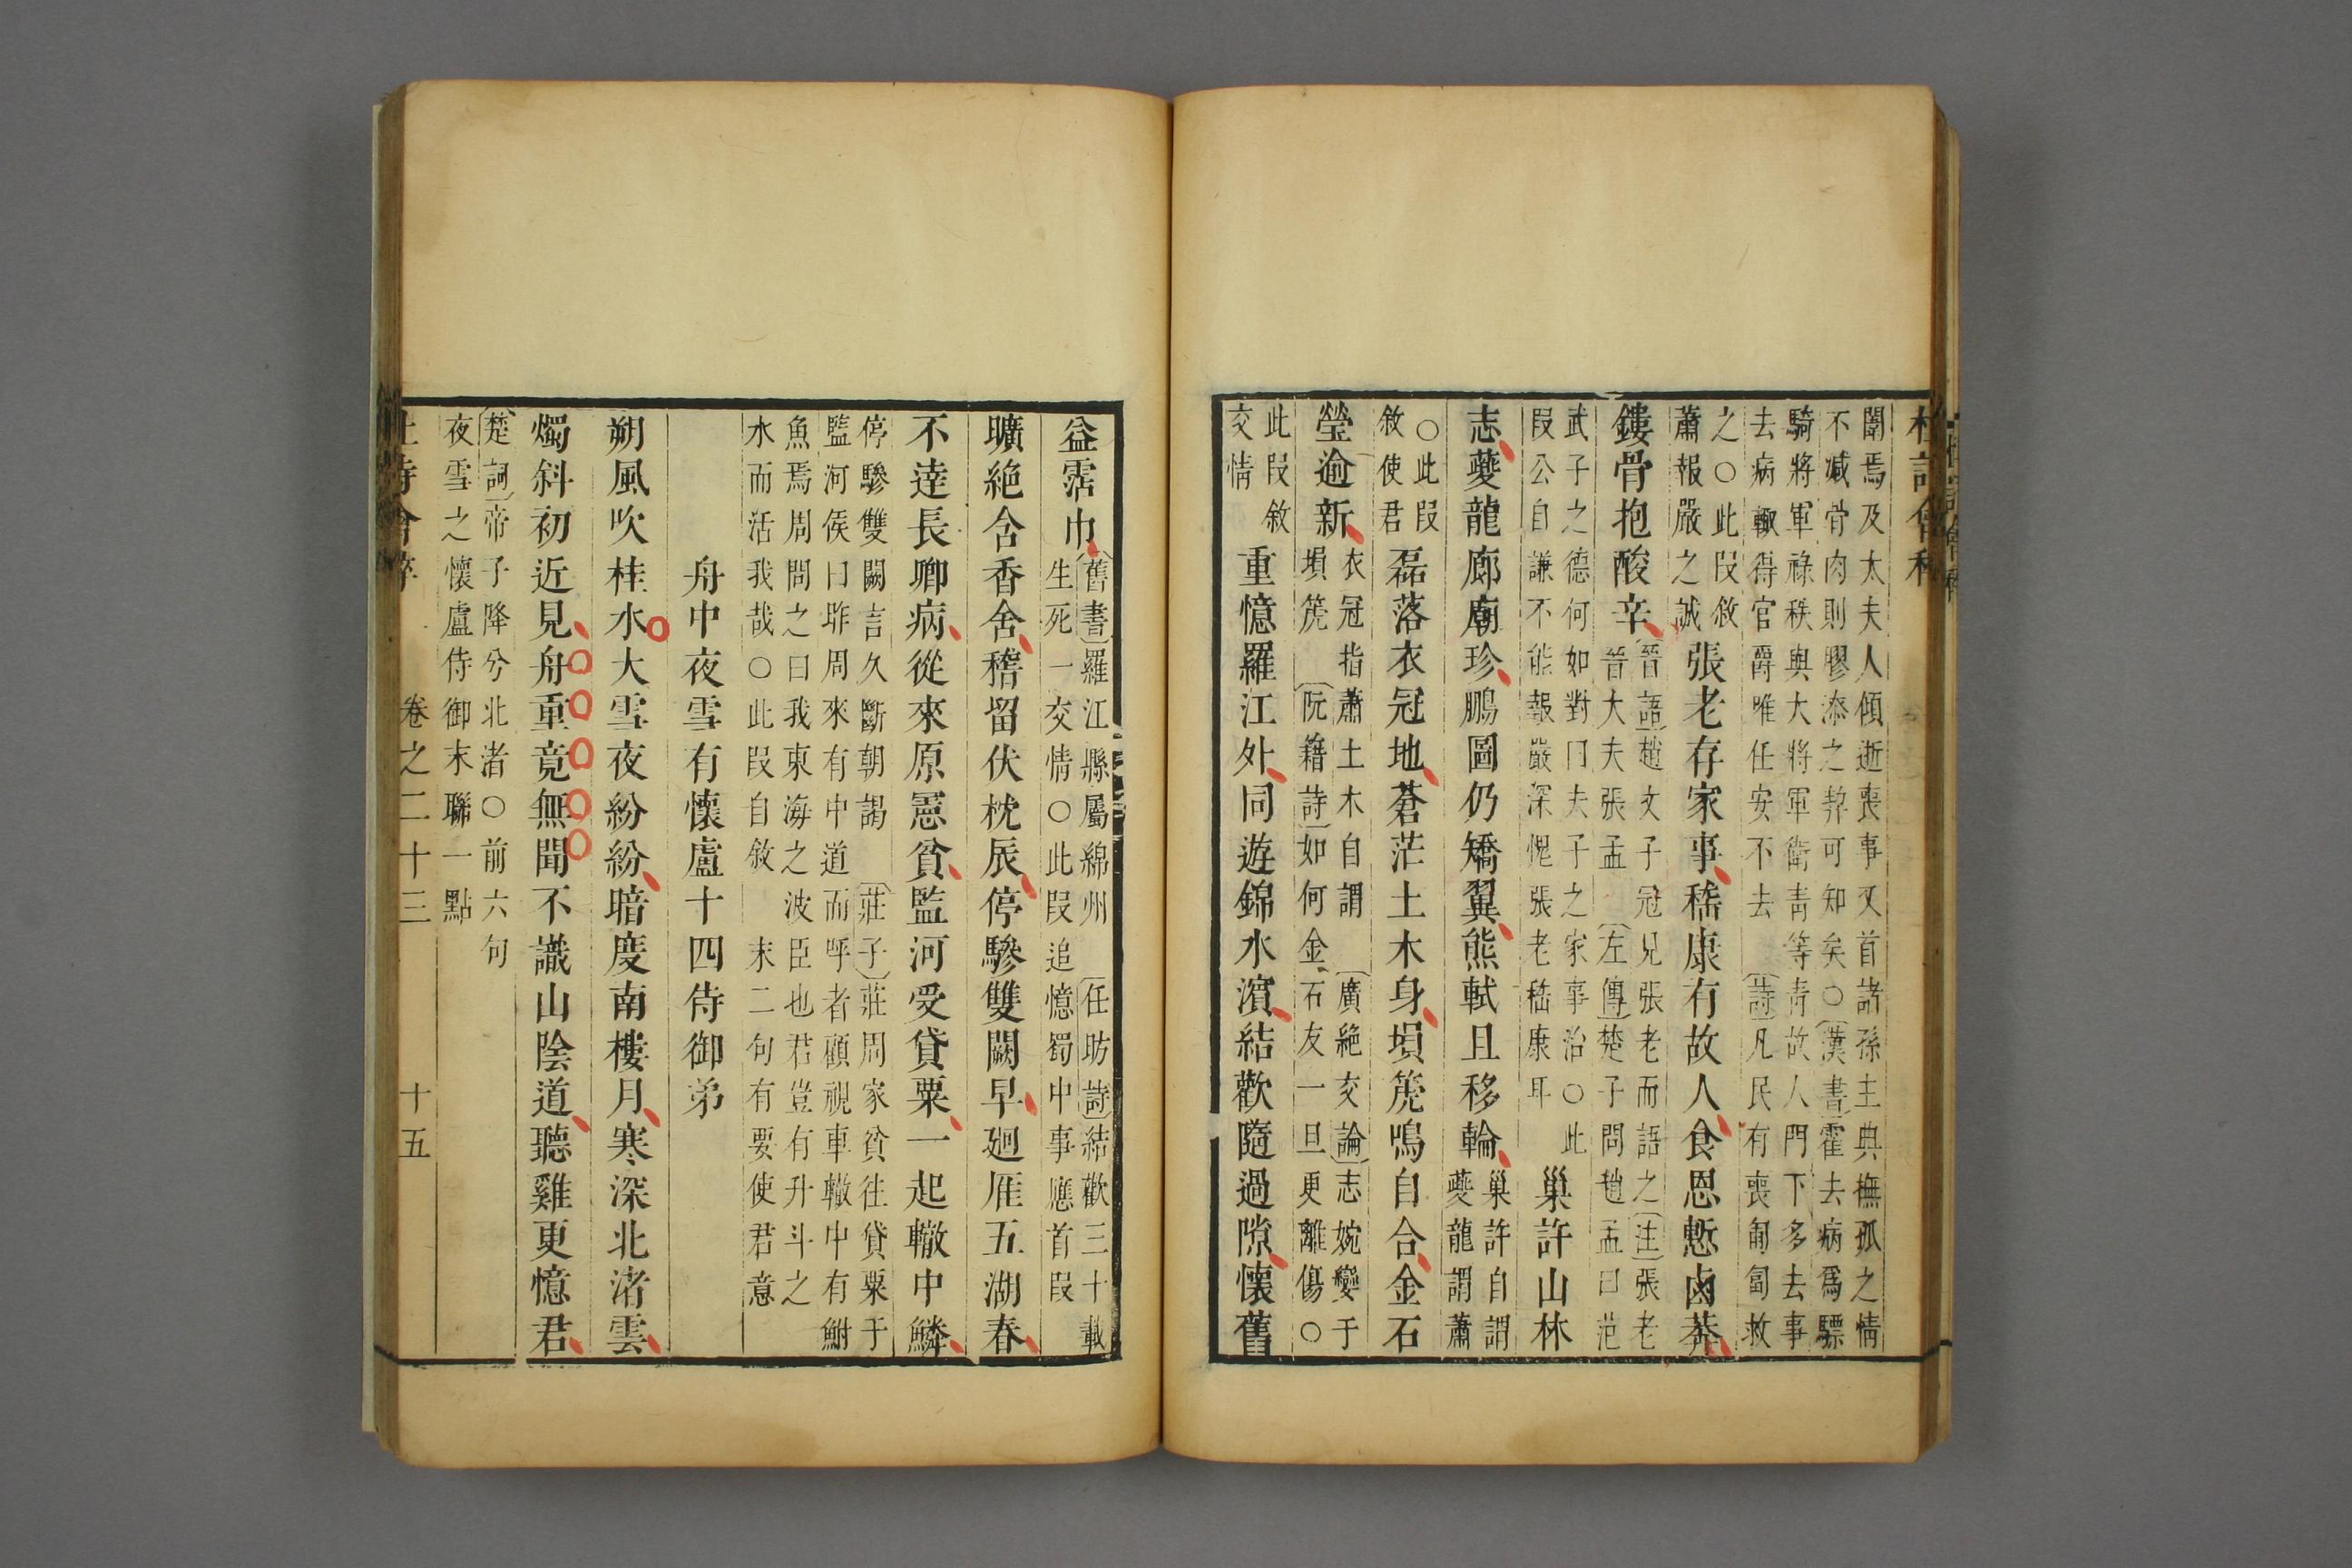 杜詩會稡
闈焉及太夫人傾逝喪事又首諸孫主典撫孤之情
不減骨肉則膠漆之契可知矣○〔漢書〕霍去病爲驃
騎將軍祿秩與大將軍衛青等青故人門下多去事
去病輒得官爵唯任安不去〔詩〕凡民有喪匍匐救
之○此段敘
蕭報嚴之誠
張老存家事嵇康有故人食恩慙鹵莽
鏤骨抱酸辛
〔晉語〕趙文子冠見張老而語之〔注〕張老
晉大夫張孟〔左傳〕楚子問趙孟曰范
武子之德何如對曰夫子之家事治○此
段公自謙不能報嚴深愧張老嵇康耳
巢許山林
志夔龍廊廟珍鵬圖仍矯翼熊軾且移輪
巢許自謂
夔龍謂蕭
○此段
敘使君
磊落衣冠地蒼茫土木身塤箎鳴自合金石
瑩逾新
衣冠指蕭土木自謂〔廣絶交論〕志婉孌于
塤箎〔阮籍詩〕如何金石友一旦更離傷○
此段敘
交情
重憶羅江外同遊錦水濱結歡隨過隙懷舊
益霑巾
〔舊書〕羅江縣屬綿州〔任昉詩〕結歡三十載
生死一交情○此段追憶蜀中事應首段
曠絶含香舍稽留伏枕辰停驂雙闕早廻雁五湖春
不達長卿病從來原憲貧監河受貸粟一起轍中鱗
停驂雙闕言久斷朝謁〔莊子〕莊周家貧往貸粟于
監河侯曰昨周來有中道而呼者顧視車轍中有鮒
魚焉周問之曰我東海之波臣也君豈有升斗之
水而活我哉○此段自敘 末二句有要使君意
舟中夜雪有懷盧十四侍御弟
朔風吹桂水大雪夜紛紛暗度南樓月寒深北渚雲
燭斜初近見舟重竟無聞不識山陰道聽雞更憶君
〔楚詞〕帝子降兮北渚○前六句
夜雪之懷盧侍御末聯一點
杜詩會稡 卷之二十三 十五